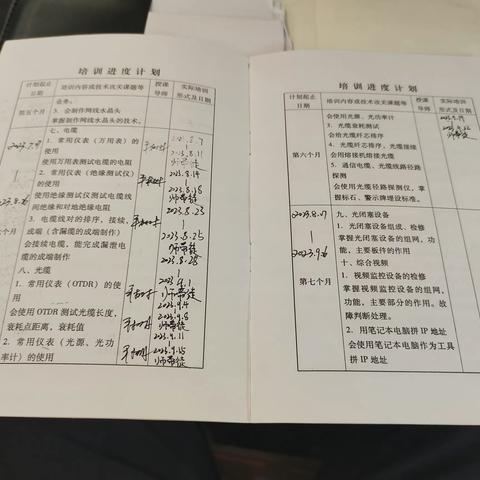 培训进度计划
计划起止日期
培训内容或技术攻关课题等
授课导师
实际培训形式及日期
第五个月
业务。
3. 会制作网线水晶头
掌握制作网线水晶头的技术。
七、电缆
1. 常用仪表（万用表）的使用
使用万用表测试电缆的电阻
2. 常用仪表（绝缘测试仪）的使用
使用绝缘测试仪测试电缆线间绝缘和对地绝缘电阻
3. 电缆线对的排序，接续，成端（含漏缆的成端制作）
会接续电缆，能完成漏泄电缆的成端制作
八、光缆
1. 常用仪表（OTDR）的使用
会使用 OTDR 测试光缆长度，衰耗点距离，衰耗值
2. 常用仪表（光源、光功率计）的使用
个月
2023.8.14
2023.8.18
师带徒
2023.8.23
2023.8.25
师带徒
2023.8.28
师带徒
2023.9.4
2023.9.8
师带徒
2023.9.11
2023.9.15
师带徒
培训进度计划
计划起止日期
培训内容或技术攻关课题等
授课导师
实际培训形式及日期
第六个月
会使用光源、光功率计
3. 光缆衰耗测试
会给光缆纤芯排序
4. 光缆纤芯排序，光缆接续
会用熔接机熔接光缆
5. 通信电缆、光缆线路径路探测
会使用光缆径路探测仪，掌握标石、警示牌埋设标准。
师带徒
2023.9.7
2023.9.6
第七个月
九、光闭塞设备
1. 光闭塞设备组成、检修
掌握光闭塞设备的组网，功能，主要板件的作用
十、综合视频
1. 视频监控设备的检修
掌握视频监控设备的组网，功能，主要部分的作用。故障判断处理。
2. 用笔记本电脑拼 IP 地址
会使用笔记本电脑作为工具拼 IP 地址